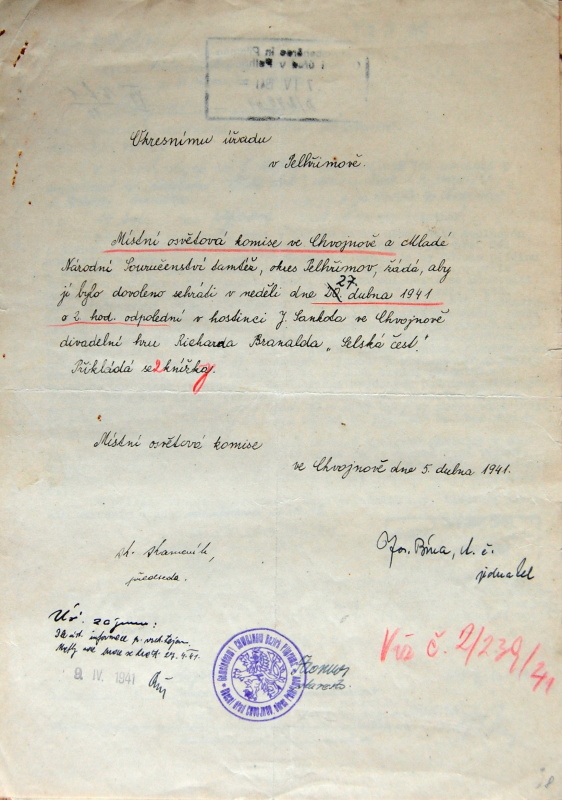 Okresnímu úřadu
v Pelhřimově.
Místní osvětová komise ve Chvojnově a Mladé
Národní Souručenství tamtéž, okres Pelhřimov, žádá, aby
jí bylo dovoleno sehráti v neděli dne 27. dubna 1941
o 2 hod. odpolední v hostinci J. Sankota ve Chvojnově
divadelní hru Richarda Branalda „Selská čest".
Přikládá se 2 knížky.
Místní osvětová komise
ve Chvojnově dne 5. dubna 1941.
Jos. Bína, d. č.
předseda.
jednatel
Viz č. 2/239/41
9. IV. 1941
starosta